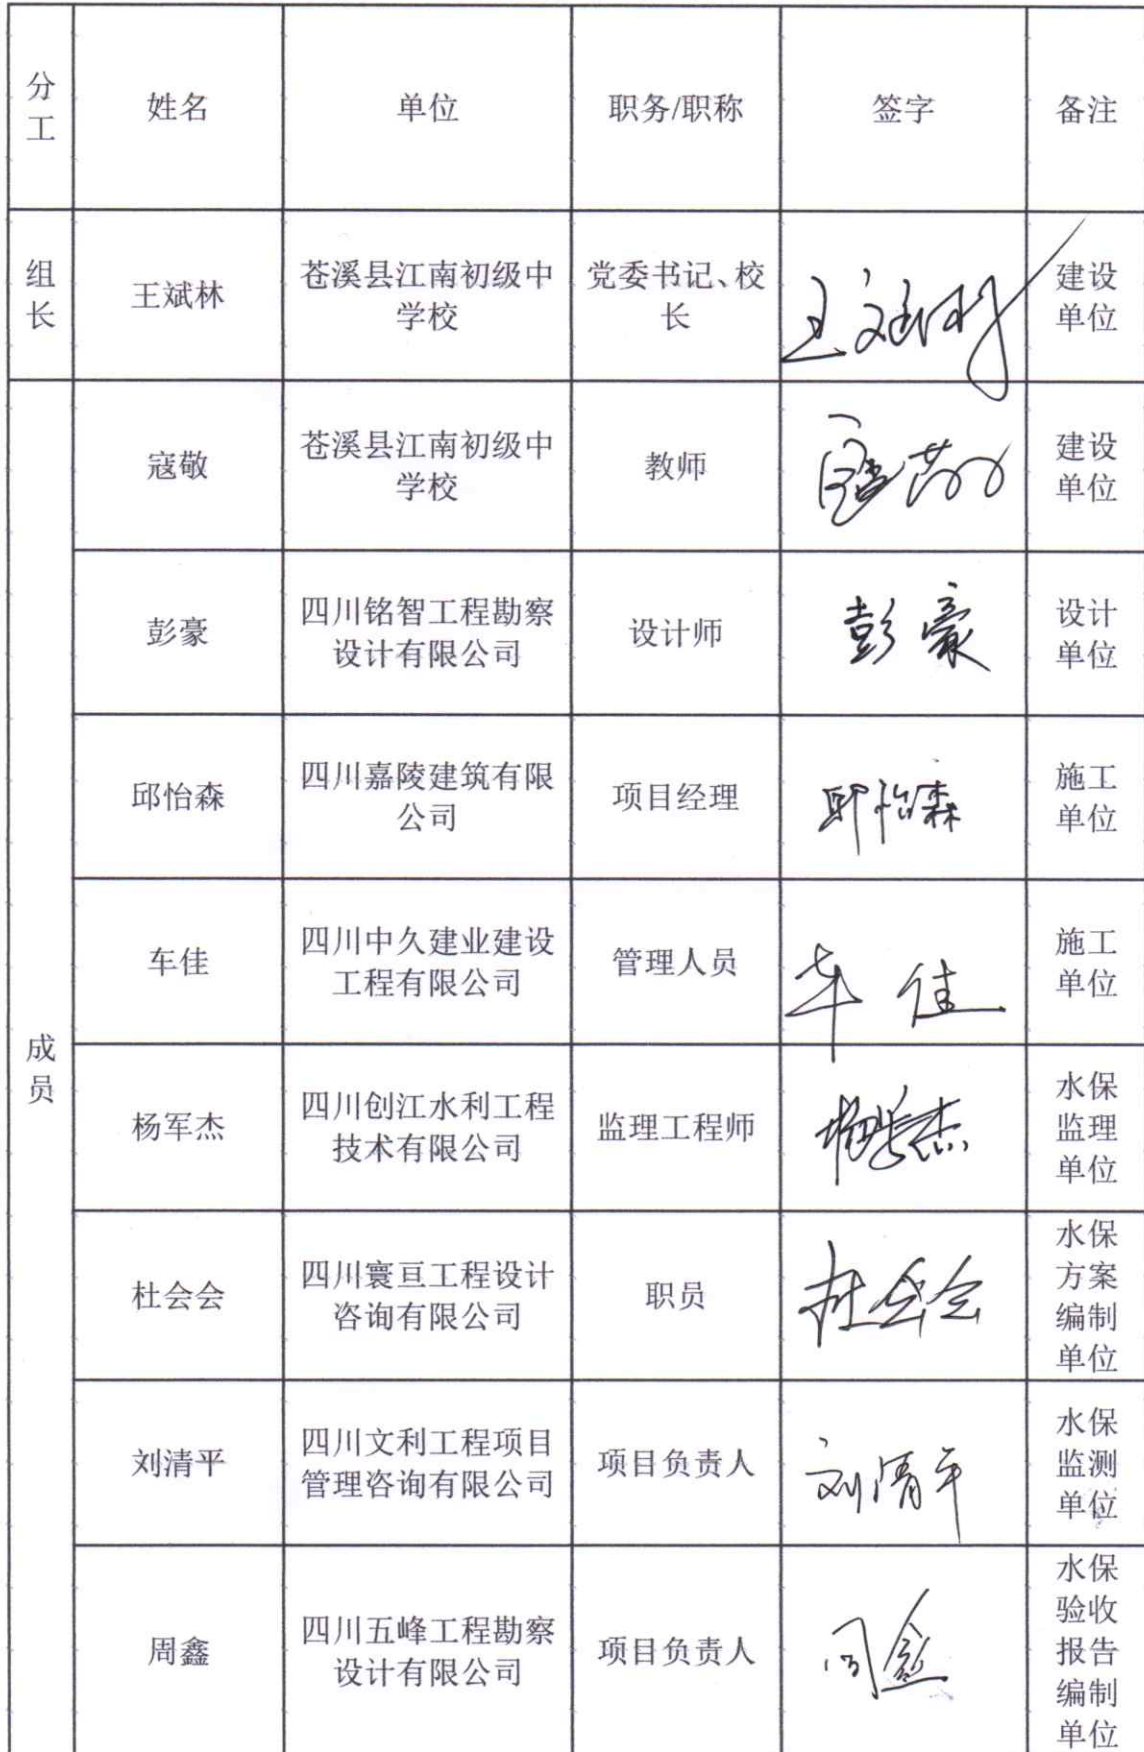 分工 姓名 单位 职务/职称 签字 备注
组长 王斌林 苍溪县江南初级中学校 党委书记、校长 王斌林 建设单位
成员 寇敬 苍溪县江南初级中学校 教师 寇敬 建设单位
彭豪 四川铭智工程勘察设计有限公司 设计师 彭豪 设计单位
邱怡森 四川嘉陵建筑有限公司 项目经理 邱怡森 施工单位
车佳 四川中久建业建设工程有限公司 管理人员 车佳 施工单位
杨军杰 四川创江水利工程技术有限公司 监理工程师 杨军杰 水保监理单位
杜会会 四川寰亘工程设计咨询有限公司 职员 杜会会 水保方案编制单位
刘清平 四川文利工程项目管理咨询有限公司 项目负责人 刘清平 水保监测单位
周鑫 四川五峰工程勘察设计有限公司 项目负责人 周鑫 水保验收报告编制单位